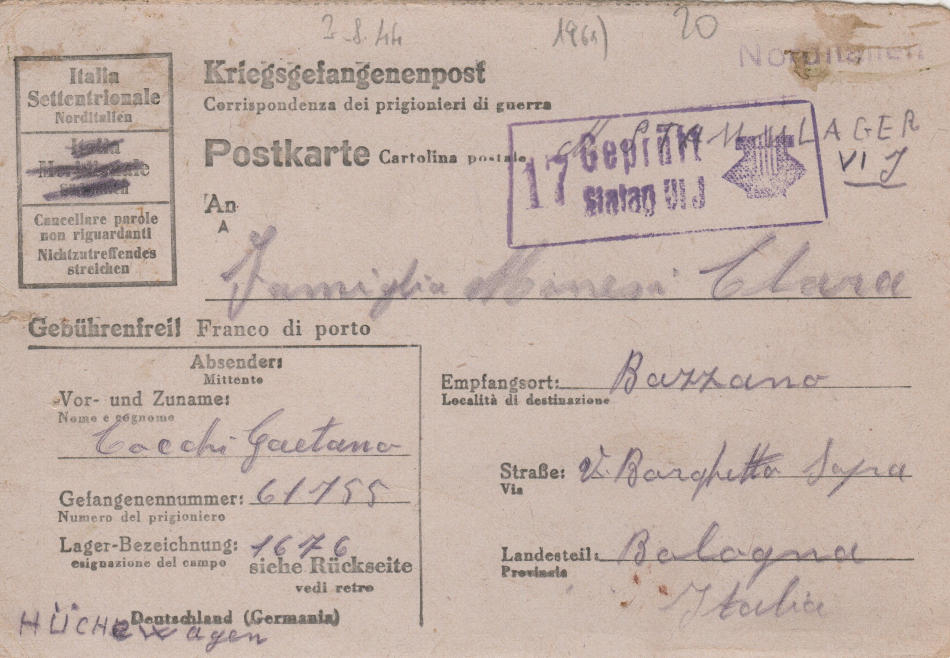 3.8.44 1961) 20
Norditalien
Italia
Settentrionale
Norditalien
Italia
Cancellare parole
non riguardanti
Nichtzutreffendes
streichen
Kriegsgefangenenpost
Corrispondenza dei prigionieri di guerra
Postkarte Cartolina postale
17 Geprüft
Stalag VI J
M STAMMLAGER
VI J
An
A
Famiglia Minesi Clara
Gebührenfrei! Franco di porto
Absender:
Mittente
Vor- und Zuname:
Nome e cognome
Cocchi Gaetano
Gefangenennummer: 61755
Numero del prigioniero
Lager-Bezeichnung: 1676
esignazione del campo
siehe Rückseite
vedi retro
Deutschland (Germania)
Empfangsort: Bazzano
Località di destinazione
Straße: V. Borghetto Sopra
Via
Landesteil: Bologna
Provincia
Italia